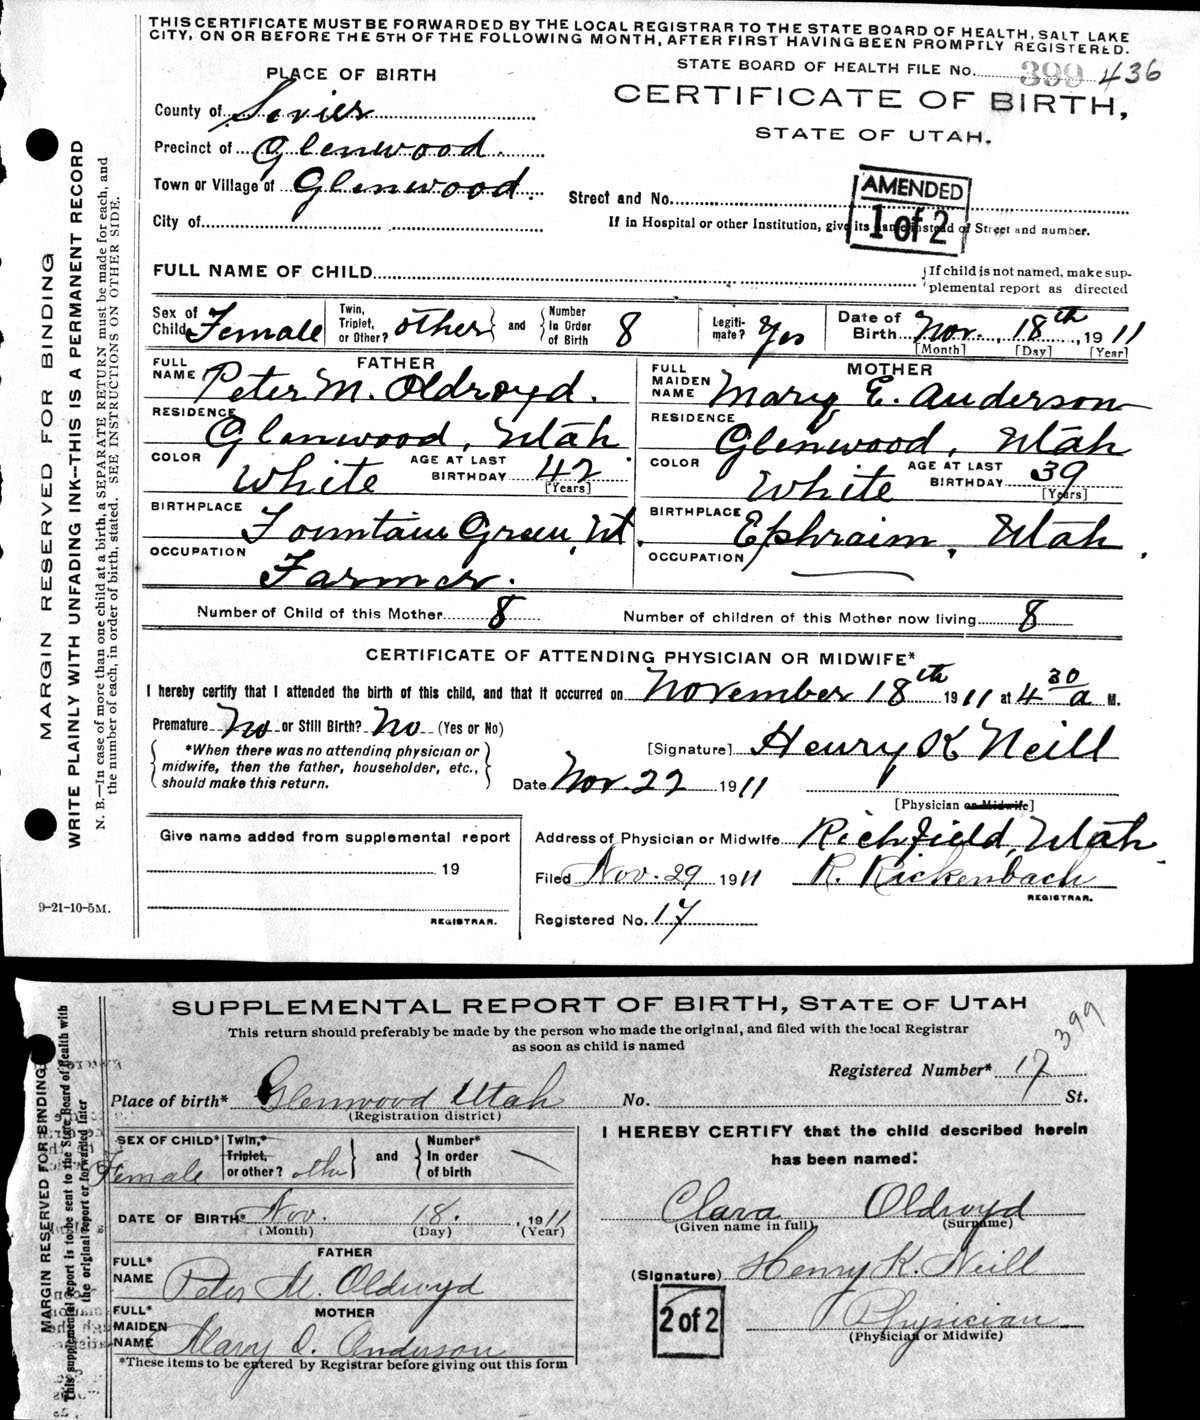 THIS CERTIFICATE MUST BE FORWARDED BY THE LOCAL REGISTRAR TO THE STATE BOARD OF HEALTH, SALT LAKE
CITY, ON OR BEFORE THE 5TH OF THE FOLLOWING MONTH, AFTER FIRST HAVING BEEN PROMPTLY REGISTERED.
STATE BOARD OF HEALTH FILE No. 399 436
PLACE OF BIRTH
CERTIFICATE OF BIRTH,
STATE OF UTAH.
County of Sevier
Precinct of Glenwood.
Town or Village of Glenwood.
City of
Street and No.
AMENDED
1 of 2
If in Hospital or other Institution, give its name instead of Street and number.
FULL NAME OF CHILD
If child is not named, make sup-
plemental report as directed
Sex of Child Female
Twin, Triplet, or Other? other and Number In Order of Birth 8
Legiti-mate? Yes
Date of Birth Nov. 18th, 1911
[Month] [Day] [Year]
FATHER
FULL NAME Peter M. Oldroyd.
RESIDENCE Glenwood, Utah
COLOR White AGE AT LAST BIRTHDAY 42 [Years]
BIRTHPLACE Fountain Green, Ut.
OCCUPATION Farmer.
MOTHER
FULL MAIDEN NAME Mary E. Anderson
RESIDENCE Glenwood, Utah
COLOR White AGE AT LAST BIRTHDAY 39 [Years]
BIRTHPLACE Ephraim, Utah.
OCCUPATION
Number of Child of this Mother 8 Number of children of this Mother now living 8
CERTIFICATE OF ATTENDING PHYSICIAN OR MIDWIFE*
I hereby certify that I attended the birth of this child, and that it occurred on November 18th 1911 at 4 30 a M.
Premature No or Still Birth? No (Yes or No)
*When there was no attending physician or
midwife, then the father, householder, etc.,
should make this return.
[Signature] Henry K Neill
Date Nov. 22 1911
[Physician or Midwife]
Give name added from supplemental report
19
REGISTRAR.
Address of Physician or Midwife Richfield, Utah.
Filed Nov. 29 1911 R. Rickenbach
REGISTRAR.
Registered No. 17
9-21-10-5M.
MARGIN RESERVED FOR BINDING
WRITE PLAINLY WITH UNFADING INK—THIS IS A PERMANENT RECORD
N. B.—In case of more than one child at a birth, a SEPARATE RETURN must be made for each, and
the number of each, in order of birth, stated. SEE INSTRUCTIONS ON OTHER SIDE.
SUPPLEMENTAL REPORT OF BIRTH, STATE OF UTAH
This return should preferably be made by the person who made the original, and filed with the local Registrar
as soon as child is named
399
Registered Number* 17
Place of birth* Glenwood Utah No. St.
(Registration district)
SEX OF CHILD* Female
Twin,* Triplet, or other? othr and Number* In order of birth
DATE OF BIRTH* Nov. 18. , 1911
(Month) (Day) (Year)
FATHER
FULL* NAME Peter M. Oldroyd
MOTHER
FULL* MAIDEN NAME Mary Anderson
*These items to be entered by Registrar before giving out this form
I HEREBY CERTIFY that the child described herein
has been named:
Clara Oldroyd
(Given name in full) (Surname)
(Signature) Henry K. Neill
2 of 2
Physician
(Physician or Midwife)
MARGIN RESERVED FOR BINDING
This supplemental report is to be sent to the State Board of Health with
the original report or forwarded later